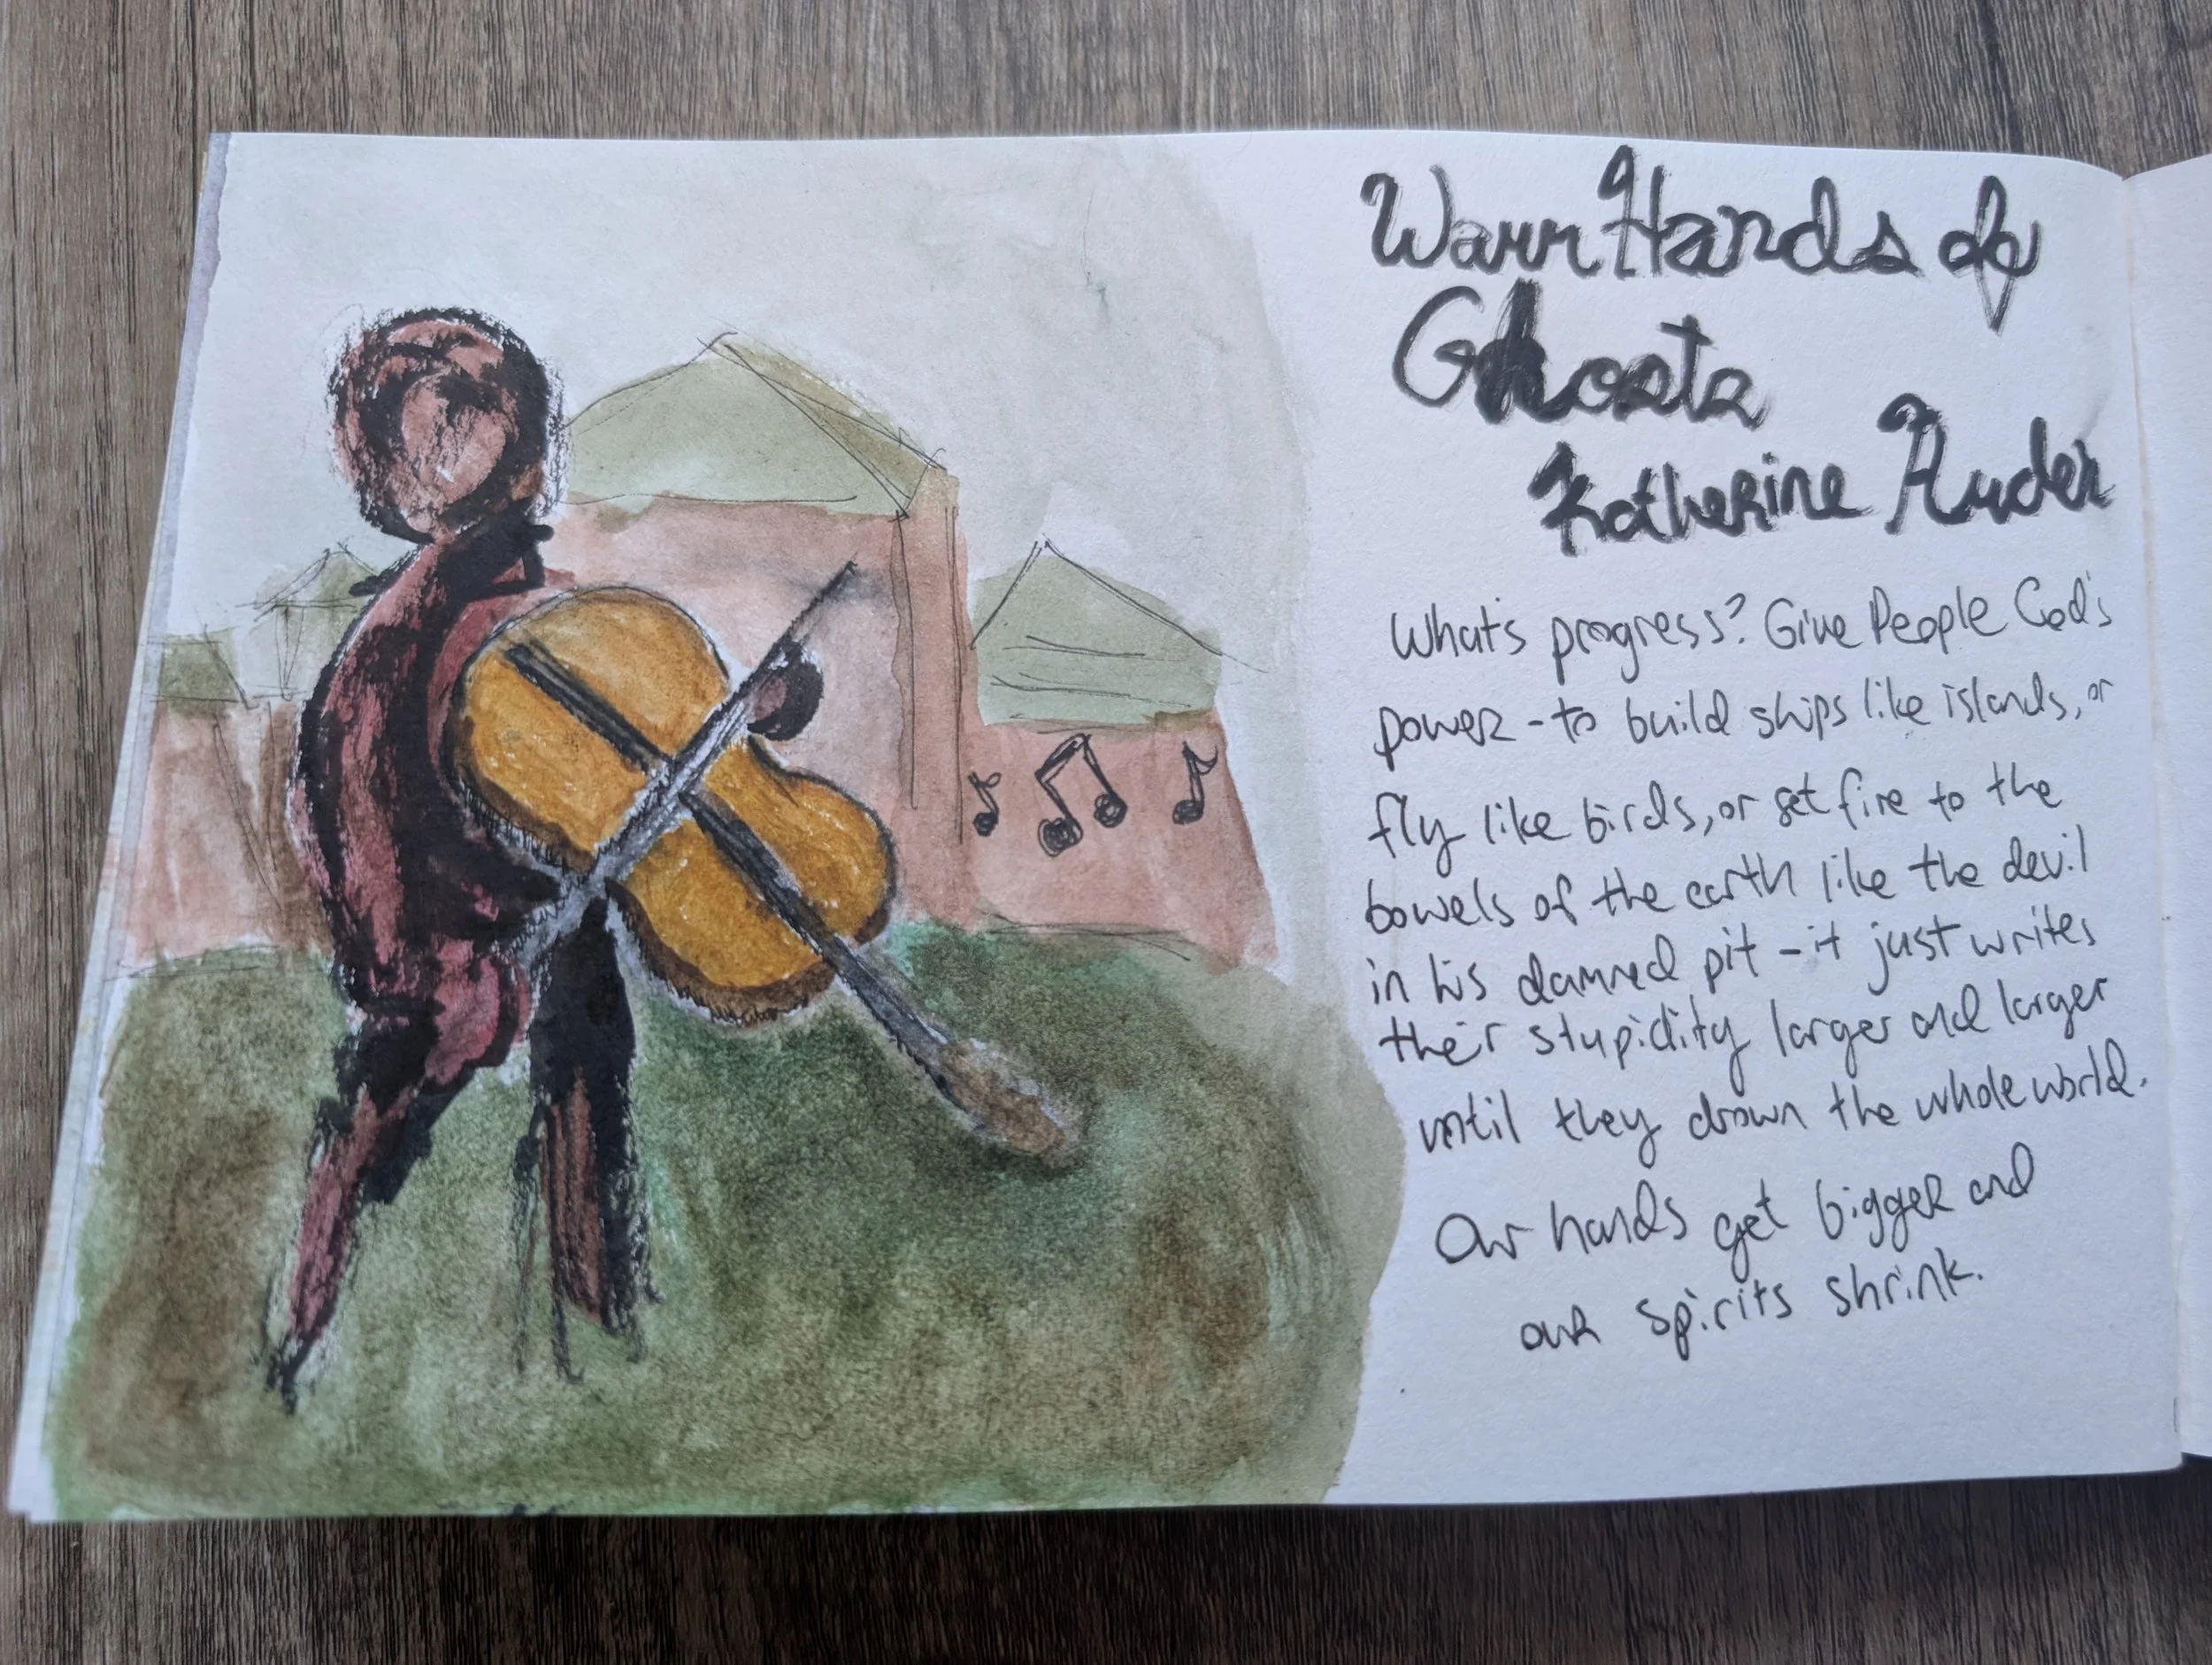 Warm Hands of
Ghosts
Katherine Auden
What's progress? Give People God's
power - to build ships like islands, or
fly like birds, or set fire to the
bowels of the earth like the devil
in his damned pit - it just writes
their stupidity larger and larger
until they drown the whole world.
Our hands get bigger and
our spirits shrink.